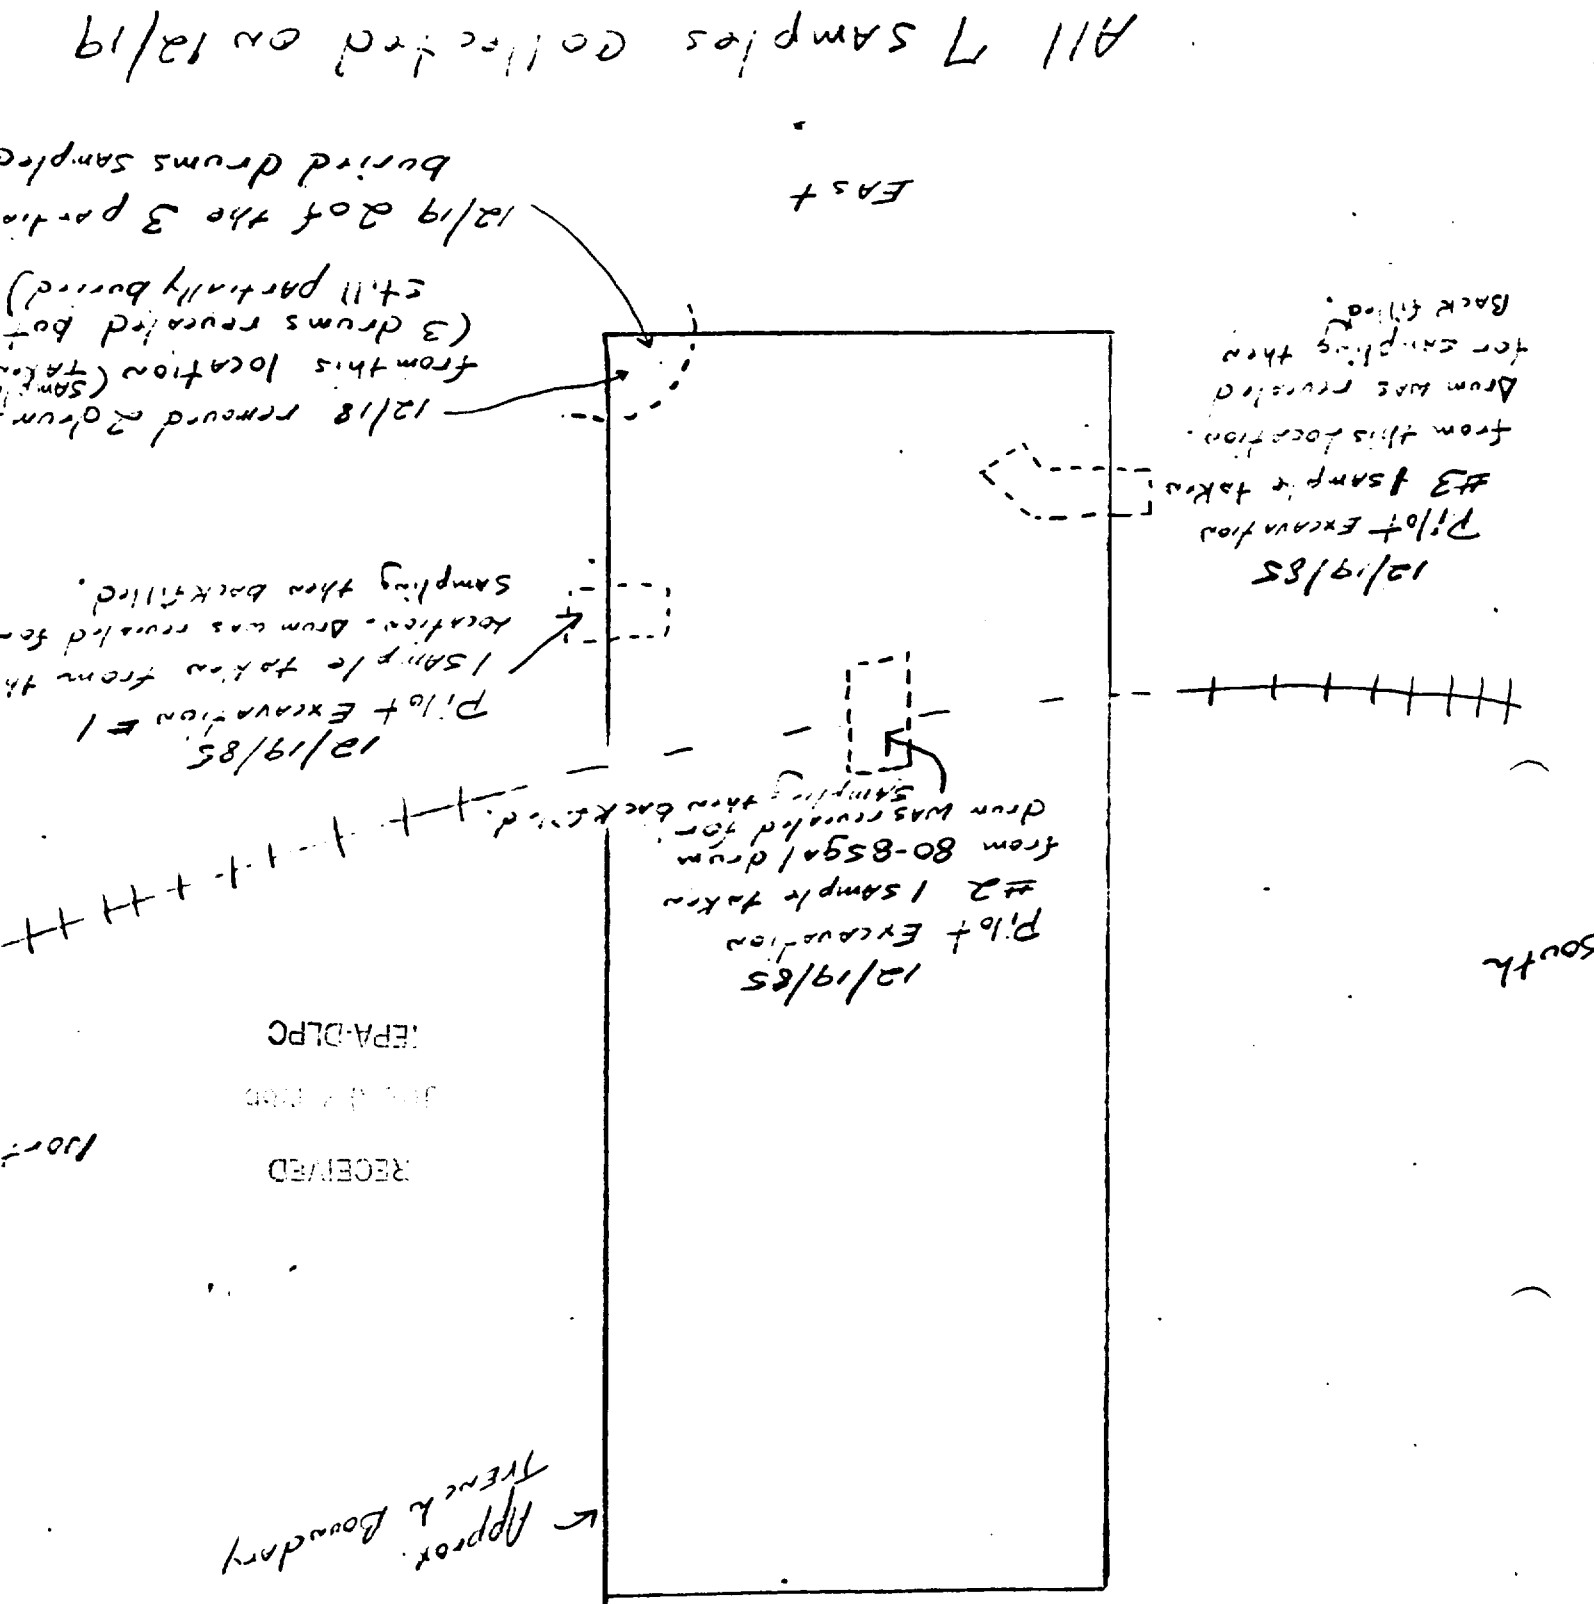 Approx.
Trench Boundary
RECEIVED
IEPA-DLPC
South
12/19/85
Pilot Excavation
#2 1 sample taken
from 80-85gal drum
drum was revealed for
sampling then backfilled.
12/19/85
Pilot Excavation #1
1 sample taken from
location. Drum was revealed for
sampling then backfilled.
12/19/85
Pilot Excavation
#3 1 sample taken
from this location.
Drum was revealed
for sampling then
Backfilled.
12/18 removed 2 drum
from this location (
(3 drums revealed but
still partially buried)
12/19 2 of the 3
buried drums sampled
East
All 7 samples collected on 12/19